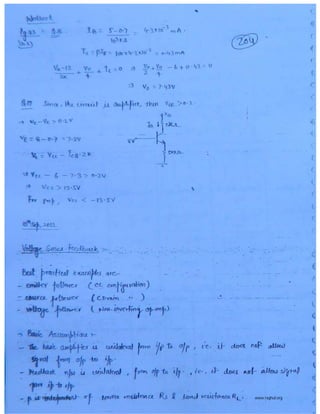 Workbook
204
Pg 93 Q.8. I_B = 5-0.7 / 10³×2 = 4.3×10⁻³ mA.
I_C = βI_B = 0.43mA
V_0-12 / 2k + V_0 / 4 + I_C = 0 ⇒ V_0/2 + V_0/4 - 6 + 0.43 = 0
⇒ V_0 = 7.43V
Since, the circuit is amplifier, then V_CE > 0.2
→ V_C - V_E > 0.2V
V_E = 8 - 0.7 = 7.3V
8V
V_C = V_CC - I_CQ.2K
⇒ V_CC - 6 - 7.3 > 0.2V
⇒ V_CC > 13.5V
For pnp, V_CC < -13.5V
Sep, 2012
Voltage Series Feedback :-
Best practical examples are-
- emitter follower (CC configuration)
- source follower (C Drain ")
- voltage follower (non-inverting op amp).
→ Basic Assumptions :-
- The basic amplifier is unilateral from i/p to o/p, i.e. it does not allow
signal from o/p to i/p.
- Feedback n/w is unilateral, from o/p to i/p., i.e. it does not allow signal
from i/p to o/p.
- β is independent of source resistance Rs & Load resistance RL.
www.raghul.org